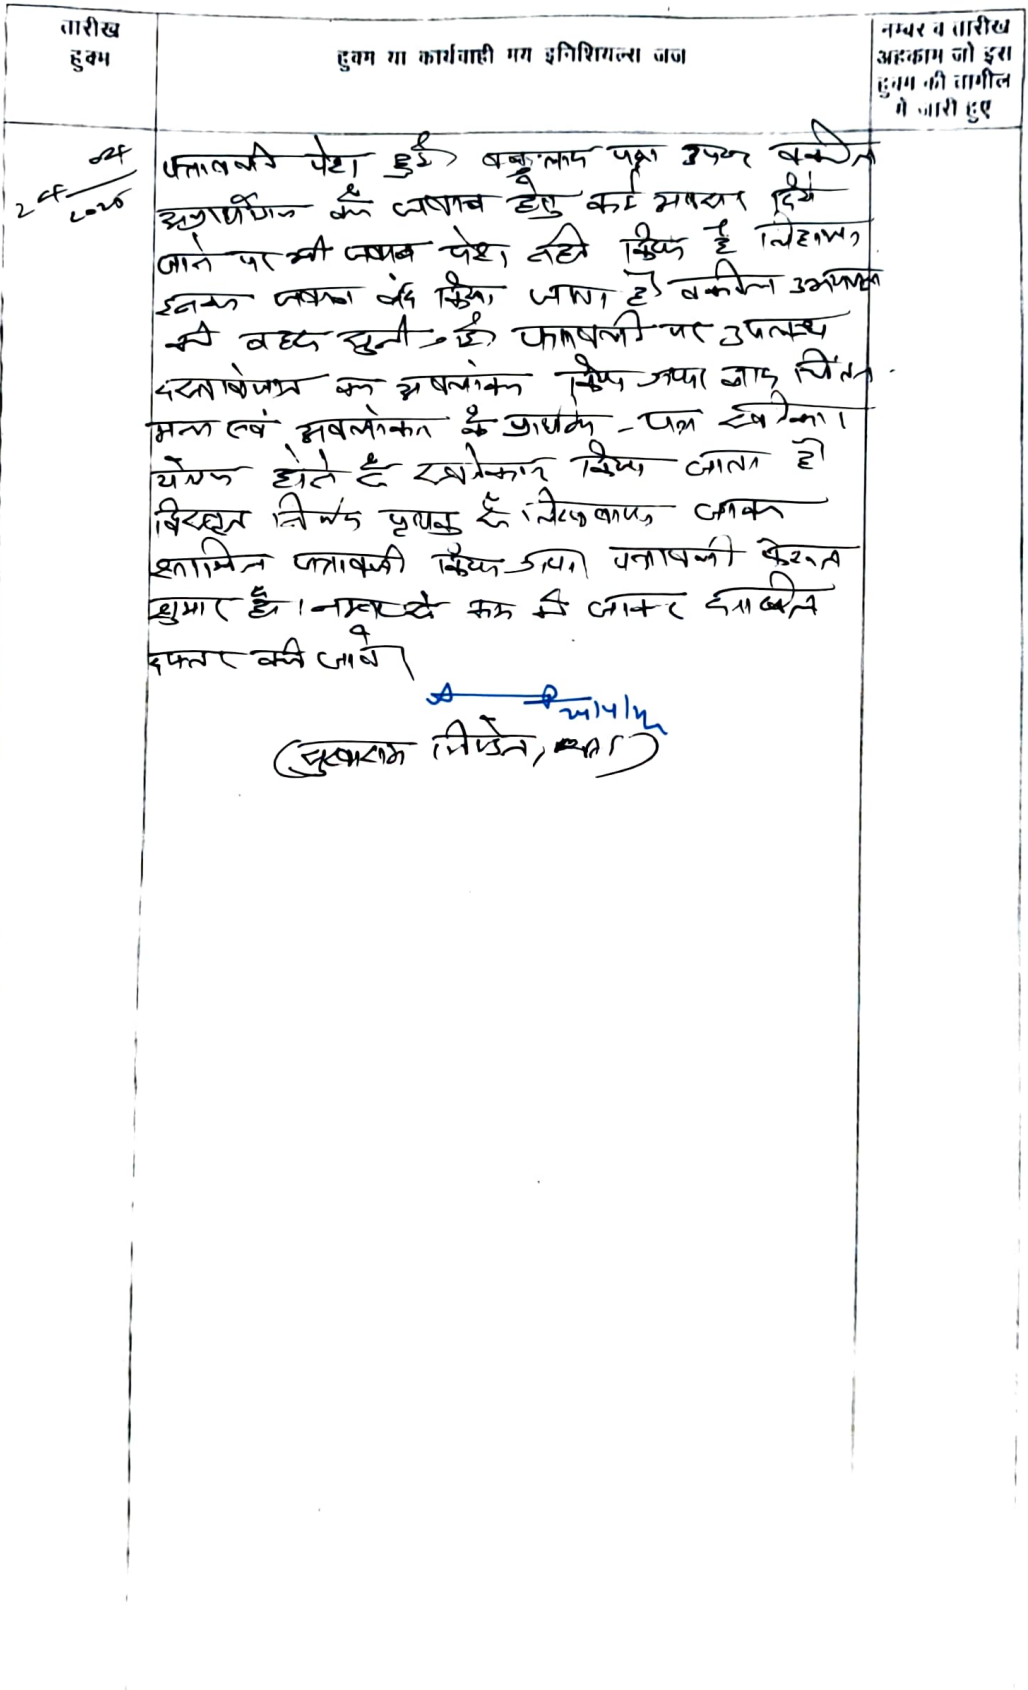 तारीख
हुक्म
हुक्म या कार्यवाही मय इनिशियल्स जज
नम्बर व तारीख
अहकाम जो इस
हुक्म की तामील
में जारी हुए
24/04/2025
पत्रावली पेश हुई। वकुलाय पक्ष उपर वकील
अप्रार्थीगण को जवाब हेतु कई अवसर दिये
जाने पर भी जवाब पेश नहीं किया है लिहाजा
इनका जवाब बंद किया जाता है। वकील उभयपक्ष
की बहस सुनी गई। पत्रावली पर उपलब्ध
दस्तावेजात का अवलोकन किया गया बाद चिंतन
मनन एवं अवलोकन के प्रार्थना-पत्र स्वीकार
योग्य होने से स्वीकार किया जाता है।
विस्तृत निर्णय पृथक से लिखवाया जाकर
शामिल पत्रावली किया गया। पत्रावली फैसल
शुमार हो। नम्बर से कम की जाकर दाखिल
दफ्तर की जावे।
24/4/25